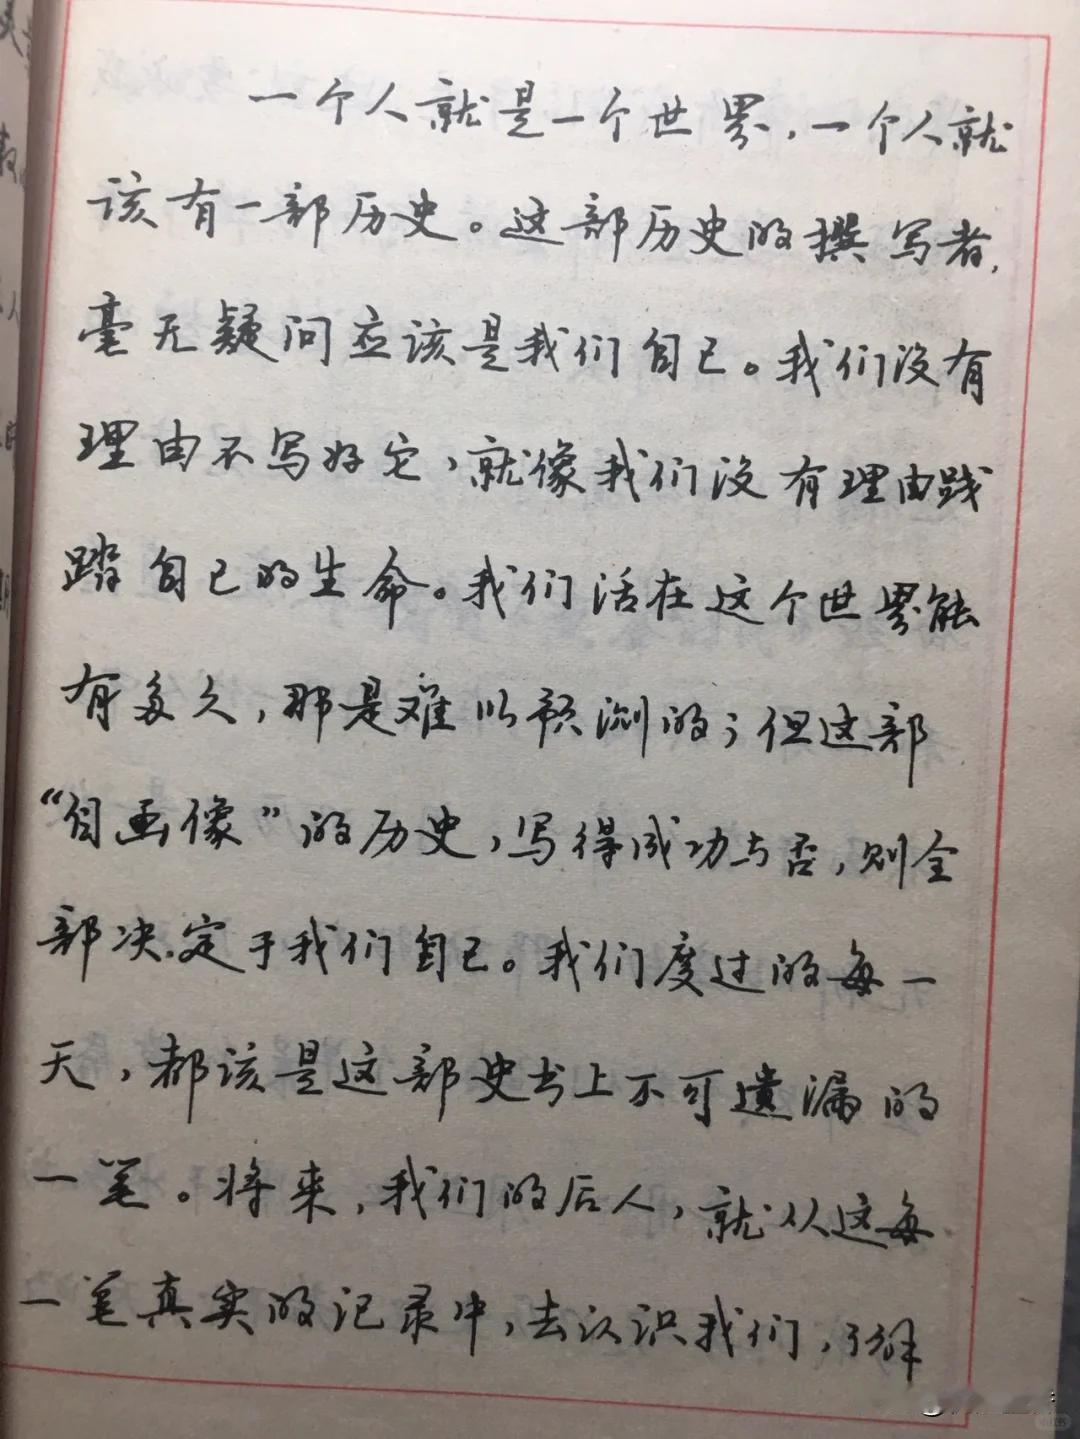 一个人就是一个世界，一个人就
该有一部历史。这部历史的撰写者，
毫无疑问应该是我们自己。我们没有
理由不写好它，就像我们没有理由践
踏自己的生命。我们活在这个世界能
有多久，那是难以预测的；但这部
“自画像”的历史，写得成功与否，则全
部决定于我们自己。我们度过的每一
天，都该是这部史书上不可遗漏的
一笔。将来，我们的后人，就从这每
一笔真实的记录中，去认识我们，了解